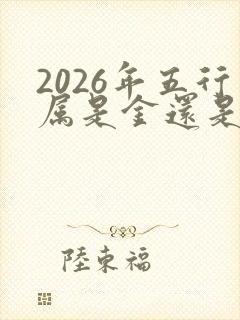 2026年五行
属是金還是
陸東福